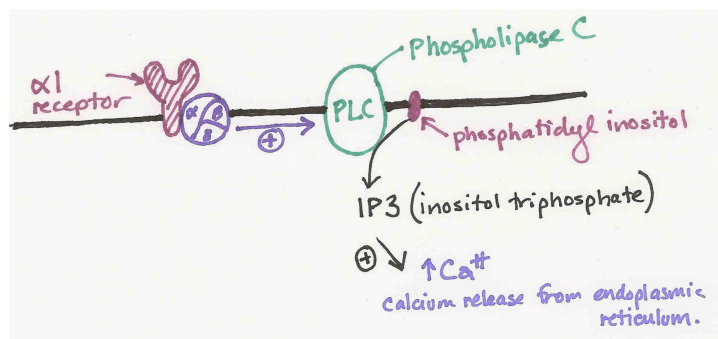 Phospholipase C
α1
receptor
α β
γ
PLC
+
phosphatidyl inositol
IP3 (inositol triphosphate)
+ ↑ Ca++
calcium release from endoplasmic
reticulum.